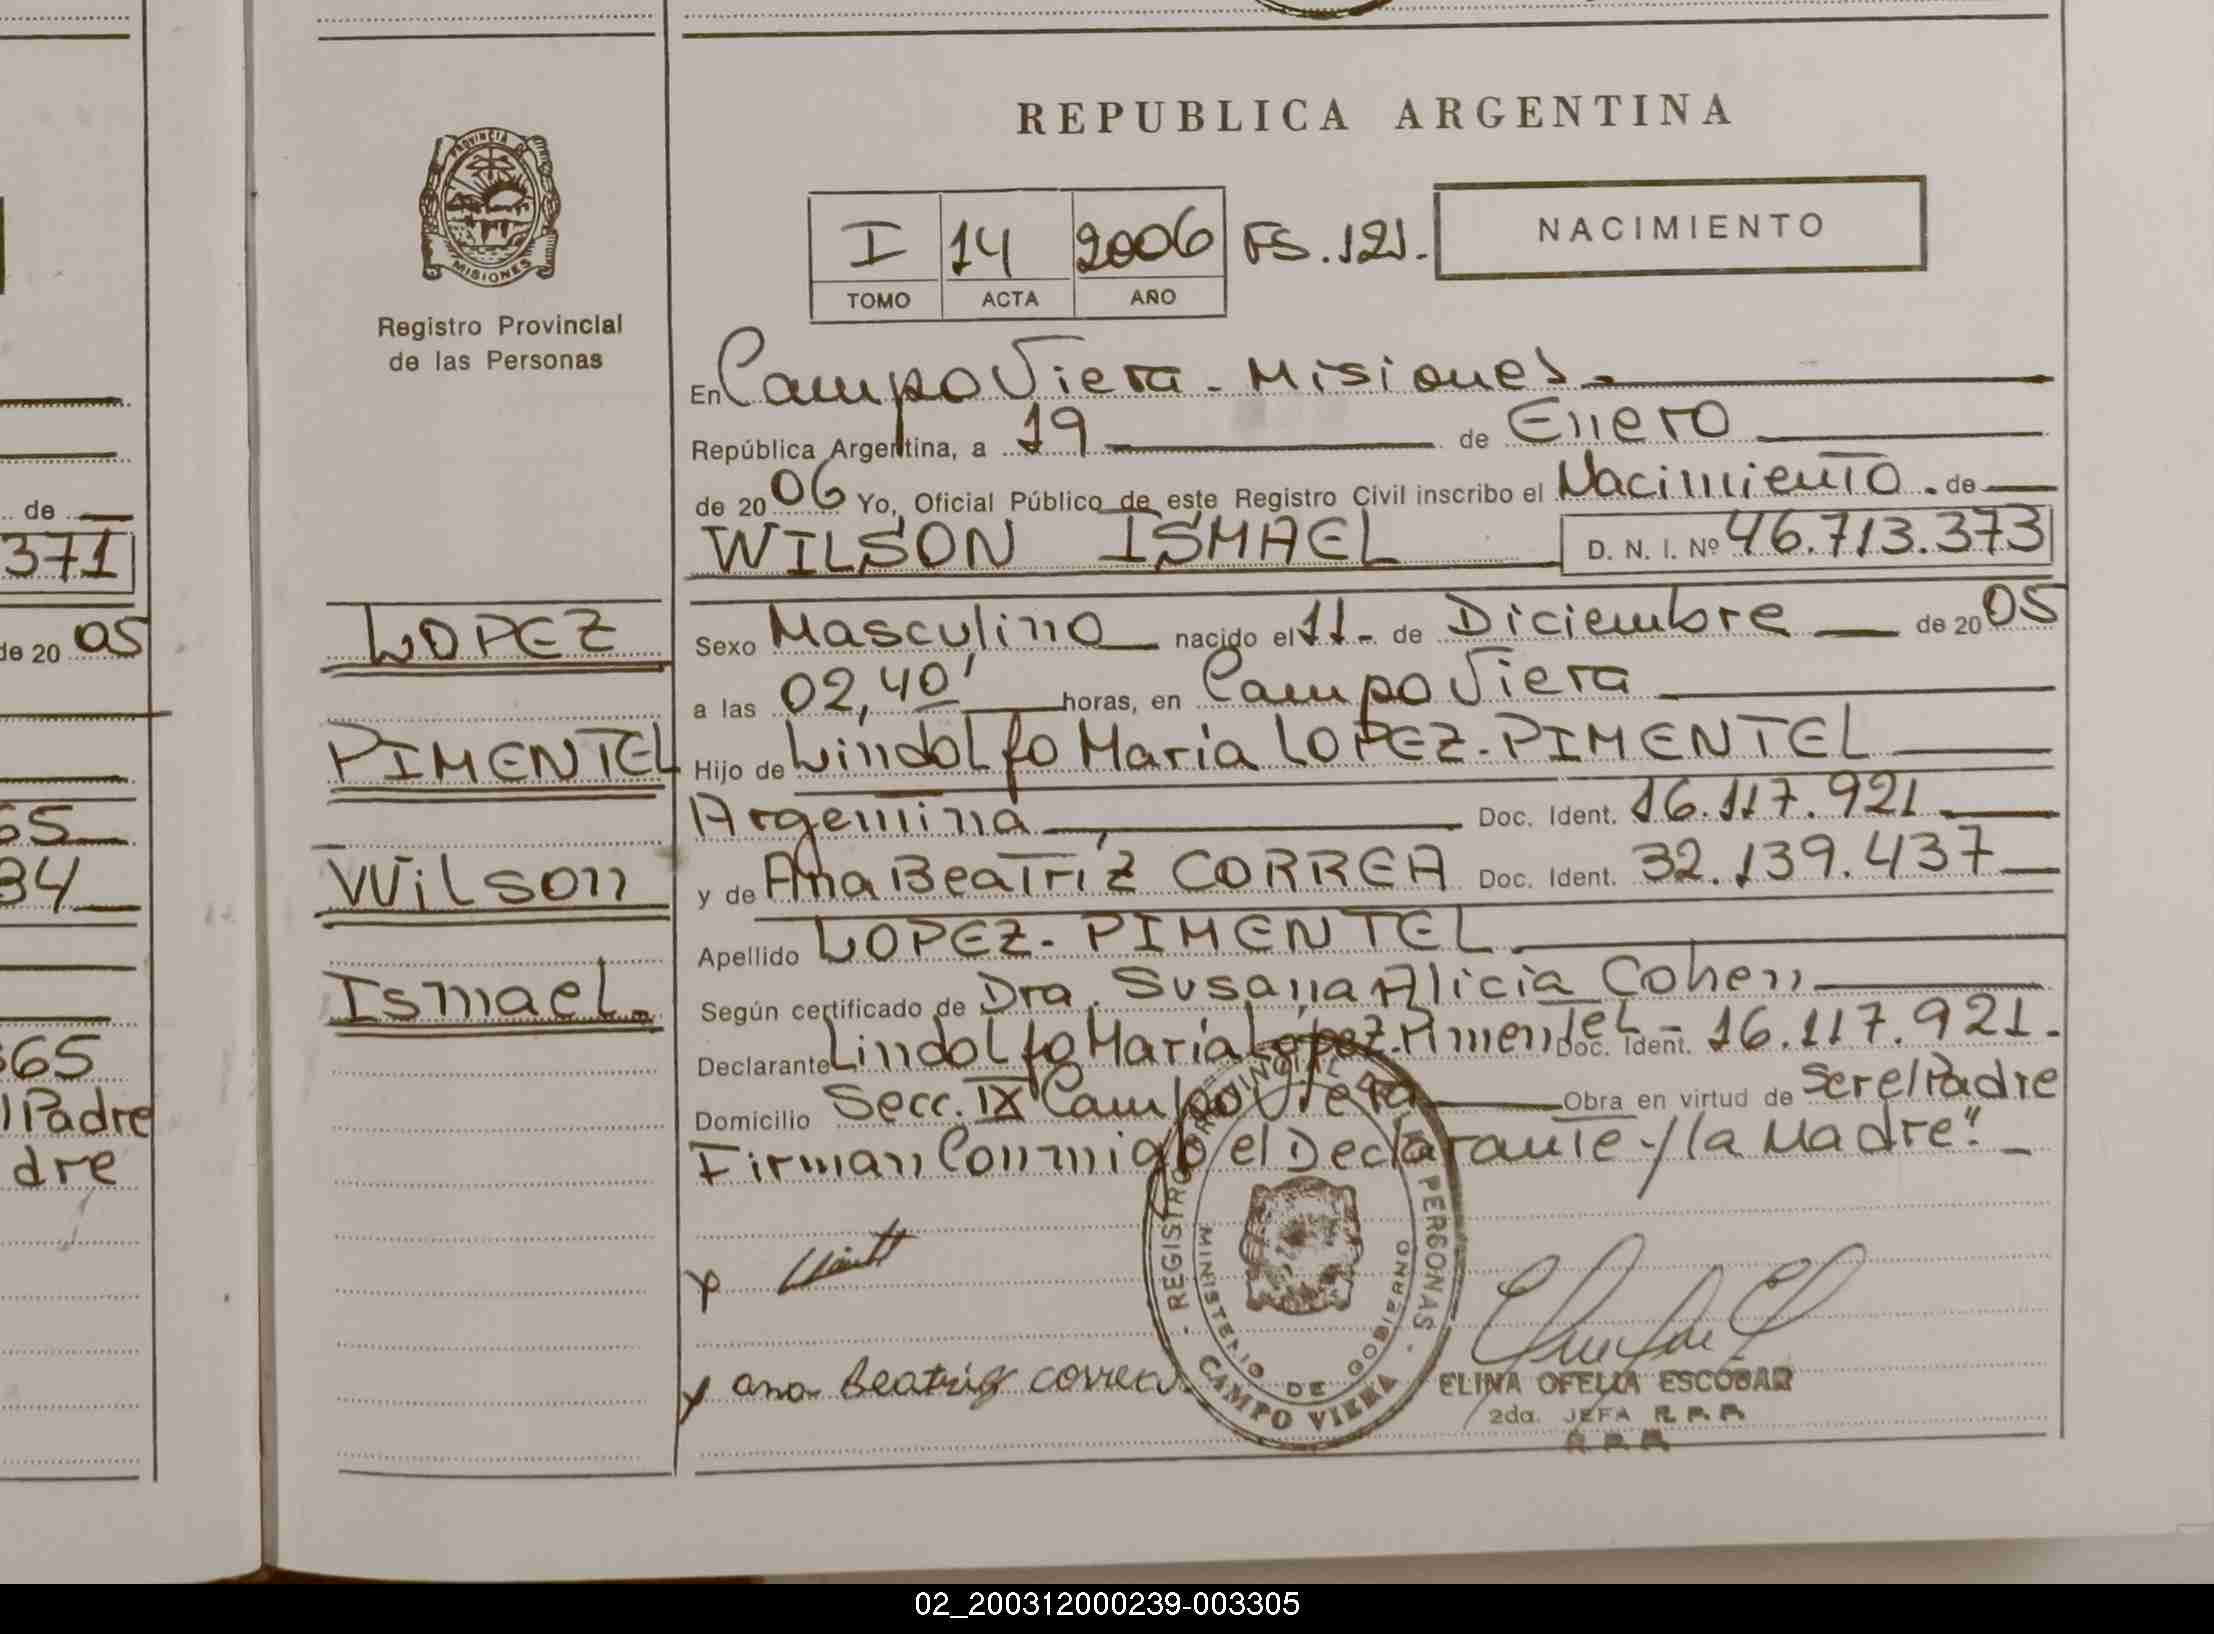 de
371
de 20 05
65
34
365
l Padre
dre
PROVINCIA DE
MISIONES
Registro Provincial
de las Personas
LOPEZ
PIMENTEL
Wilson
Ismael.
REPUBLICA ARGENTINA
I 14 2006 FS. 121.
TOMO ACTA AÑO
NACIMIENTO
En Campo Viera - Misiones.
República Argentina, a 19 de Enero
de 20 06 Yo, Oficial Público de este Registro Civil inscribo el Nacimiento. de
WILSON ISMAEL D. N. I. Nº 46.713.373
Sexo Masculino nacido el 11- de Diciembre de 20 05
a las 02,40' horas, en Campo Viera
Hijo de Lindolfo Maria LOPEZ-PIMENTEL
Argentina Doc. Ident. 16.117.921
y de Ana Beatríz CORREA Doc. Ident. 32.139.437
Apellido LOPEZ-PIMENTEL
Según certificado de Dra. Susana Alicia Cohen
Declarante Lindolfo Maria López-Pimentel - Doc. Ident. 16.117.921.
Domicilio Secc. IX Campo Viera Obra en virtud de ser el Padre
Firman Conmigo el Declarante y la Madre".
REGISTRO PROVINCIAL DE LAS PERSONAS
MINISTERIO DE GOBIERNO
CAMPO VIERA
ana Beatriz correa.
ELINA OFELIA ESCOBAR
2da. JEFA R.P.P.
R.P.P.
02_200312000239-003305